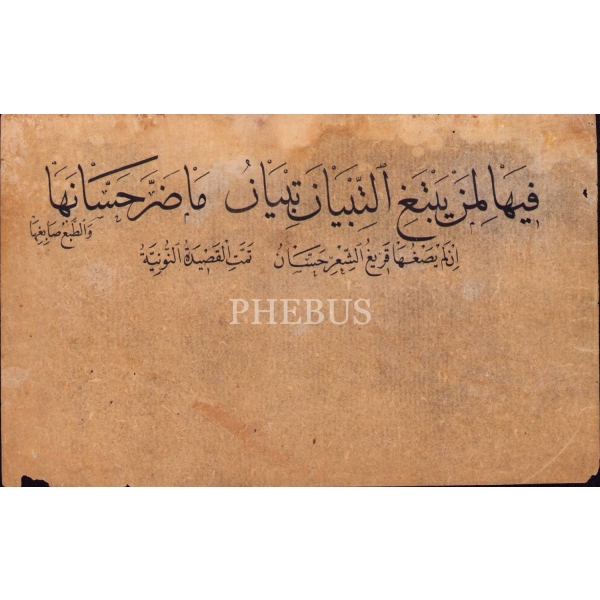 فِيهَا لِمَنْ يَبْتَغِ التِّبْيَانَ تِبْيَانُ مَا ضَرَّ حَسَّانَهَا
وَالطَّبْعُ صَايِغُهَا
اِنْ لَمْ يَصُغْهَا قَرِيعُ الشِّعْرِ حَسَّانُ تَمَّتِ الْقَصِيدَةُ النُّونِيَّةُ
PHEBUS